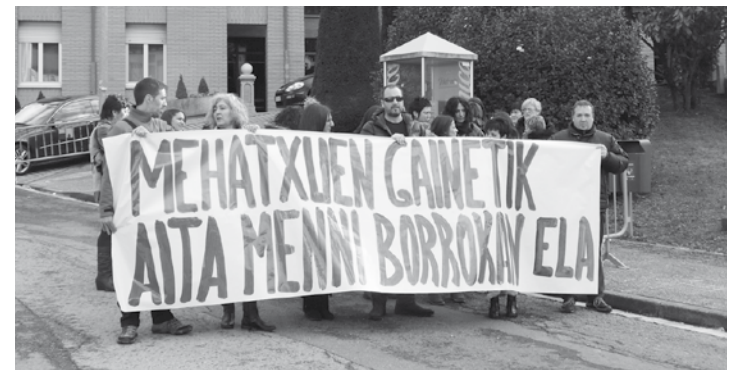 MEHATXUEN GAINETIK
AITA MENNI BORROKAN ELA